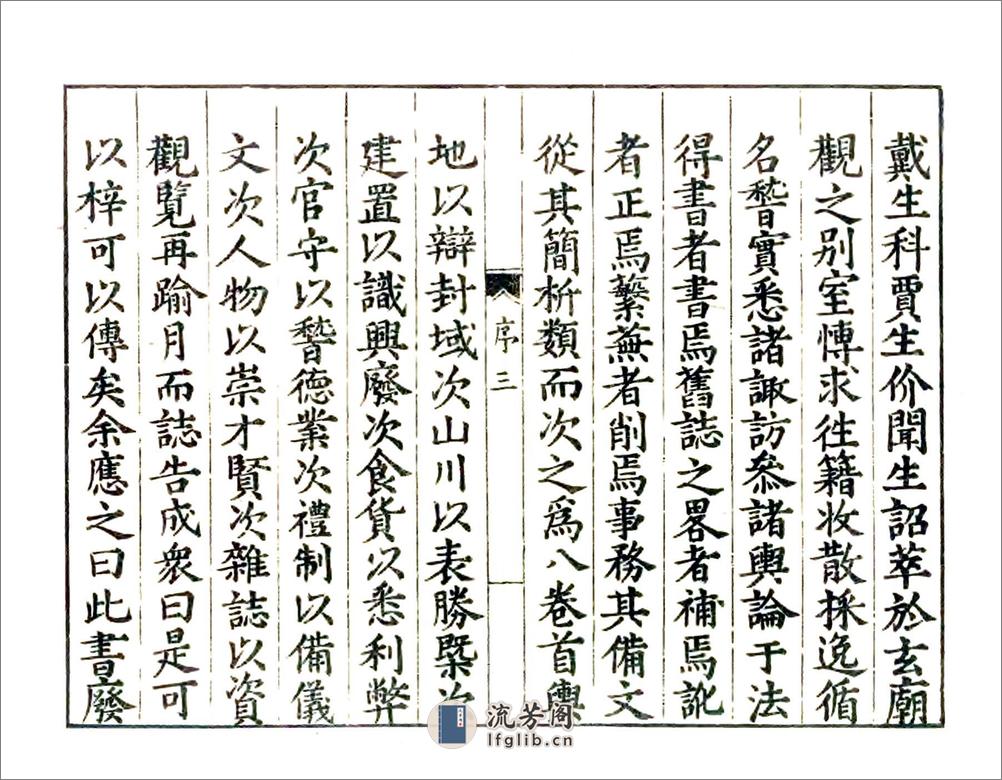 戴生科賈生价聞生詔萃於玄廟
觀之別室愽求徃籍收散採逸循
名嵆實悉諸諏訪叅諸輿論于法
得書者書焉舊誌之畧者補焉訛
者正焉蘩蕪者削焉事務其備文
從其簡析類而次之為八卷首輿
序 三
地以辯封域次山川以表勝槩次
建置以識興廢次食貨以悉利弊
次官守以嵆德業次禮制以備儀
文次人物以崇才賢次雜誌以資
觀覽再踰月而誌告成衆曰是可
以梓可以傳矣余應之曰此書廢
流芳阁
lfglib.cn